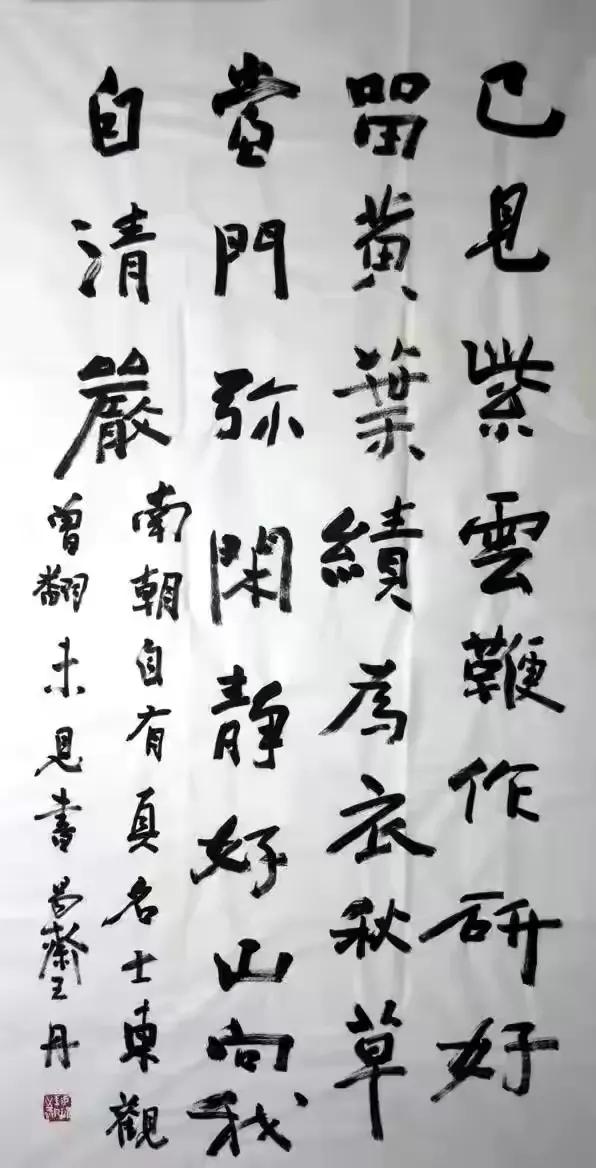 已見紫雲鞭作研好
留黃葉績為衣秋草
當門弥閑靜好山向我
自清嚴
南朝自有真名士東觀
曾翻未見書齋王丹